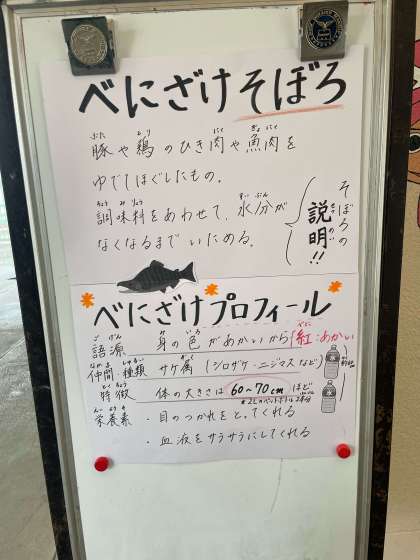 べにざけそぼろ
豚や鶏のひき肉や魚肉を
ゆでてほぐしたもの。
調味料をあわせて、水分が
なくなるまでいためる。
そぼろの
説明!!
べにざけプロフィール
語源 身の色があかいから「紅:あかい
仲間・種類 サケ属 (シロザケ・ニジマスなど)
特徴 体の大きさは 60~70cm ほど
※2Lのペットボトル2本分
栄養素 ・目のつかれをとってくれる
・血液をサラサラにしてくれる
水
水